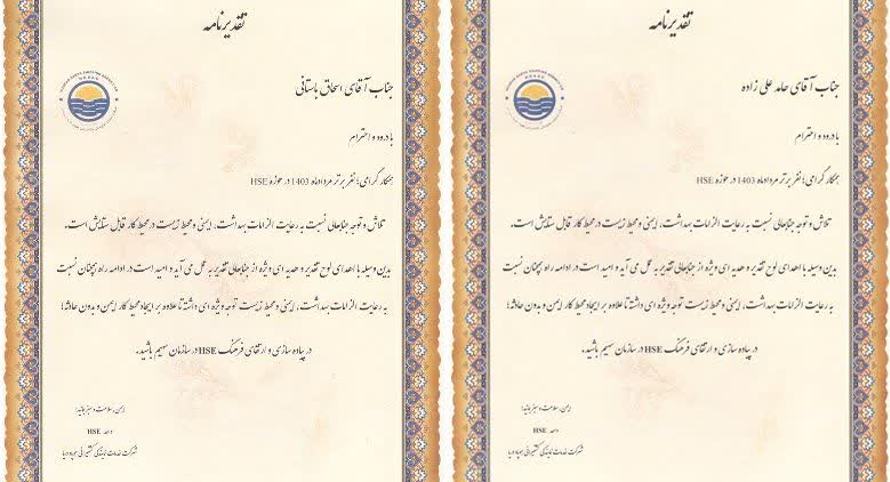 تقدیرنامه
جناب آقای حامد علی زاده
با درود و احترام
همکار گرامی؛ نفر برتر مردادماه 1403 در حوزه HSE
تلاش و توجه جنابعالی نسبت به رعایت الزامات بهداشت، ایمنی و محیط زیست در محیط کار قابل ستایش است.
بدین وسیله با اهدای لوح تقدیر و هدیه ای ویژه از جنابعالی تقدیر به عمل می آید و امید است در ادامه راه همچنان نسبت
به رعایت الزامات بهداشت، ایمنی و محیط زیست توجه ویژه ای داشته تا علاوه بر ایجاد محیط کار ایمن و بدون حادثه؛
در پیاده سازی و ارتقای فرهنگ HSE در سازمان سهیم باشید.
ایمن، سلامت و سبز بمانید!
واحد HSE
شرکت خدمات نمایندگی کشتیرانی
تقدیرنامه
جناب آقای اسحاق باستانی
با درود و احترام
همکار گرامی؛ نفر برتر مردادماه 1403 در حوزه HSE
تلاش و توجه جنابعالی نسبت به رعایت الزامات بهداشت، ایمنی و محیط زیست در محیط کار قابل ستایش است.
بدین وسیله با اهدای لوح تقدیر و هدیه ای ویژه از جنابعالی تقدیر به عمل می آید و امید است در ادامه راه همچنان نسبت
به رعایت الزامات بهداشت، ایمنی و محیط زیست توجه ویژه ای داشته تا علاوه بر ایجاد محیط کار ایمن و بدون حادثه؛
در پیاده سازی و ارتقای فرهنگ HSE در سازمان سهیم باشید.
ایمن، سلامت و سبز بمانید!
واحد HSE
شرکت خدمات نمایندگی کشتیرانی